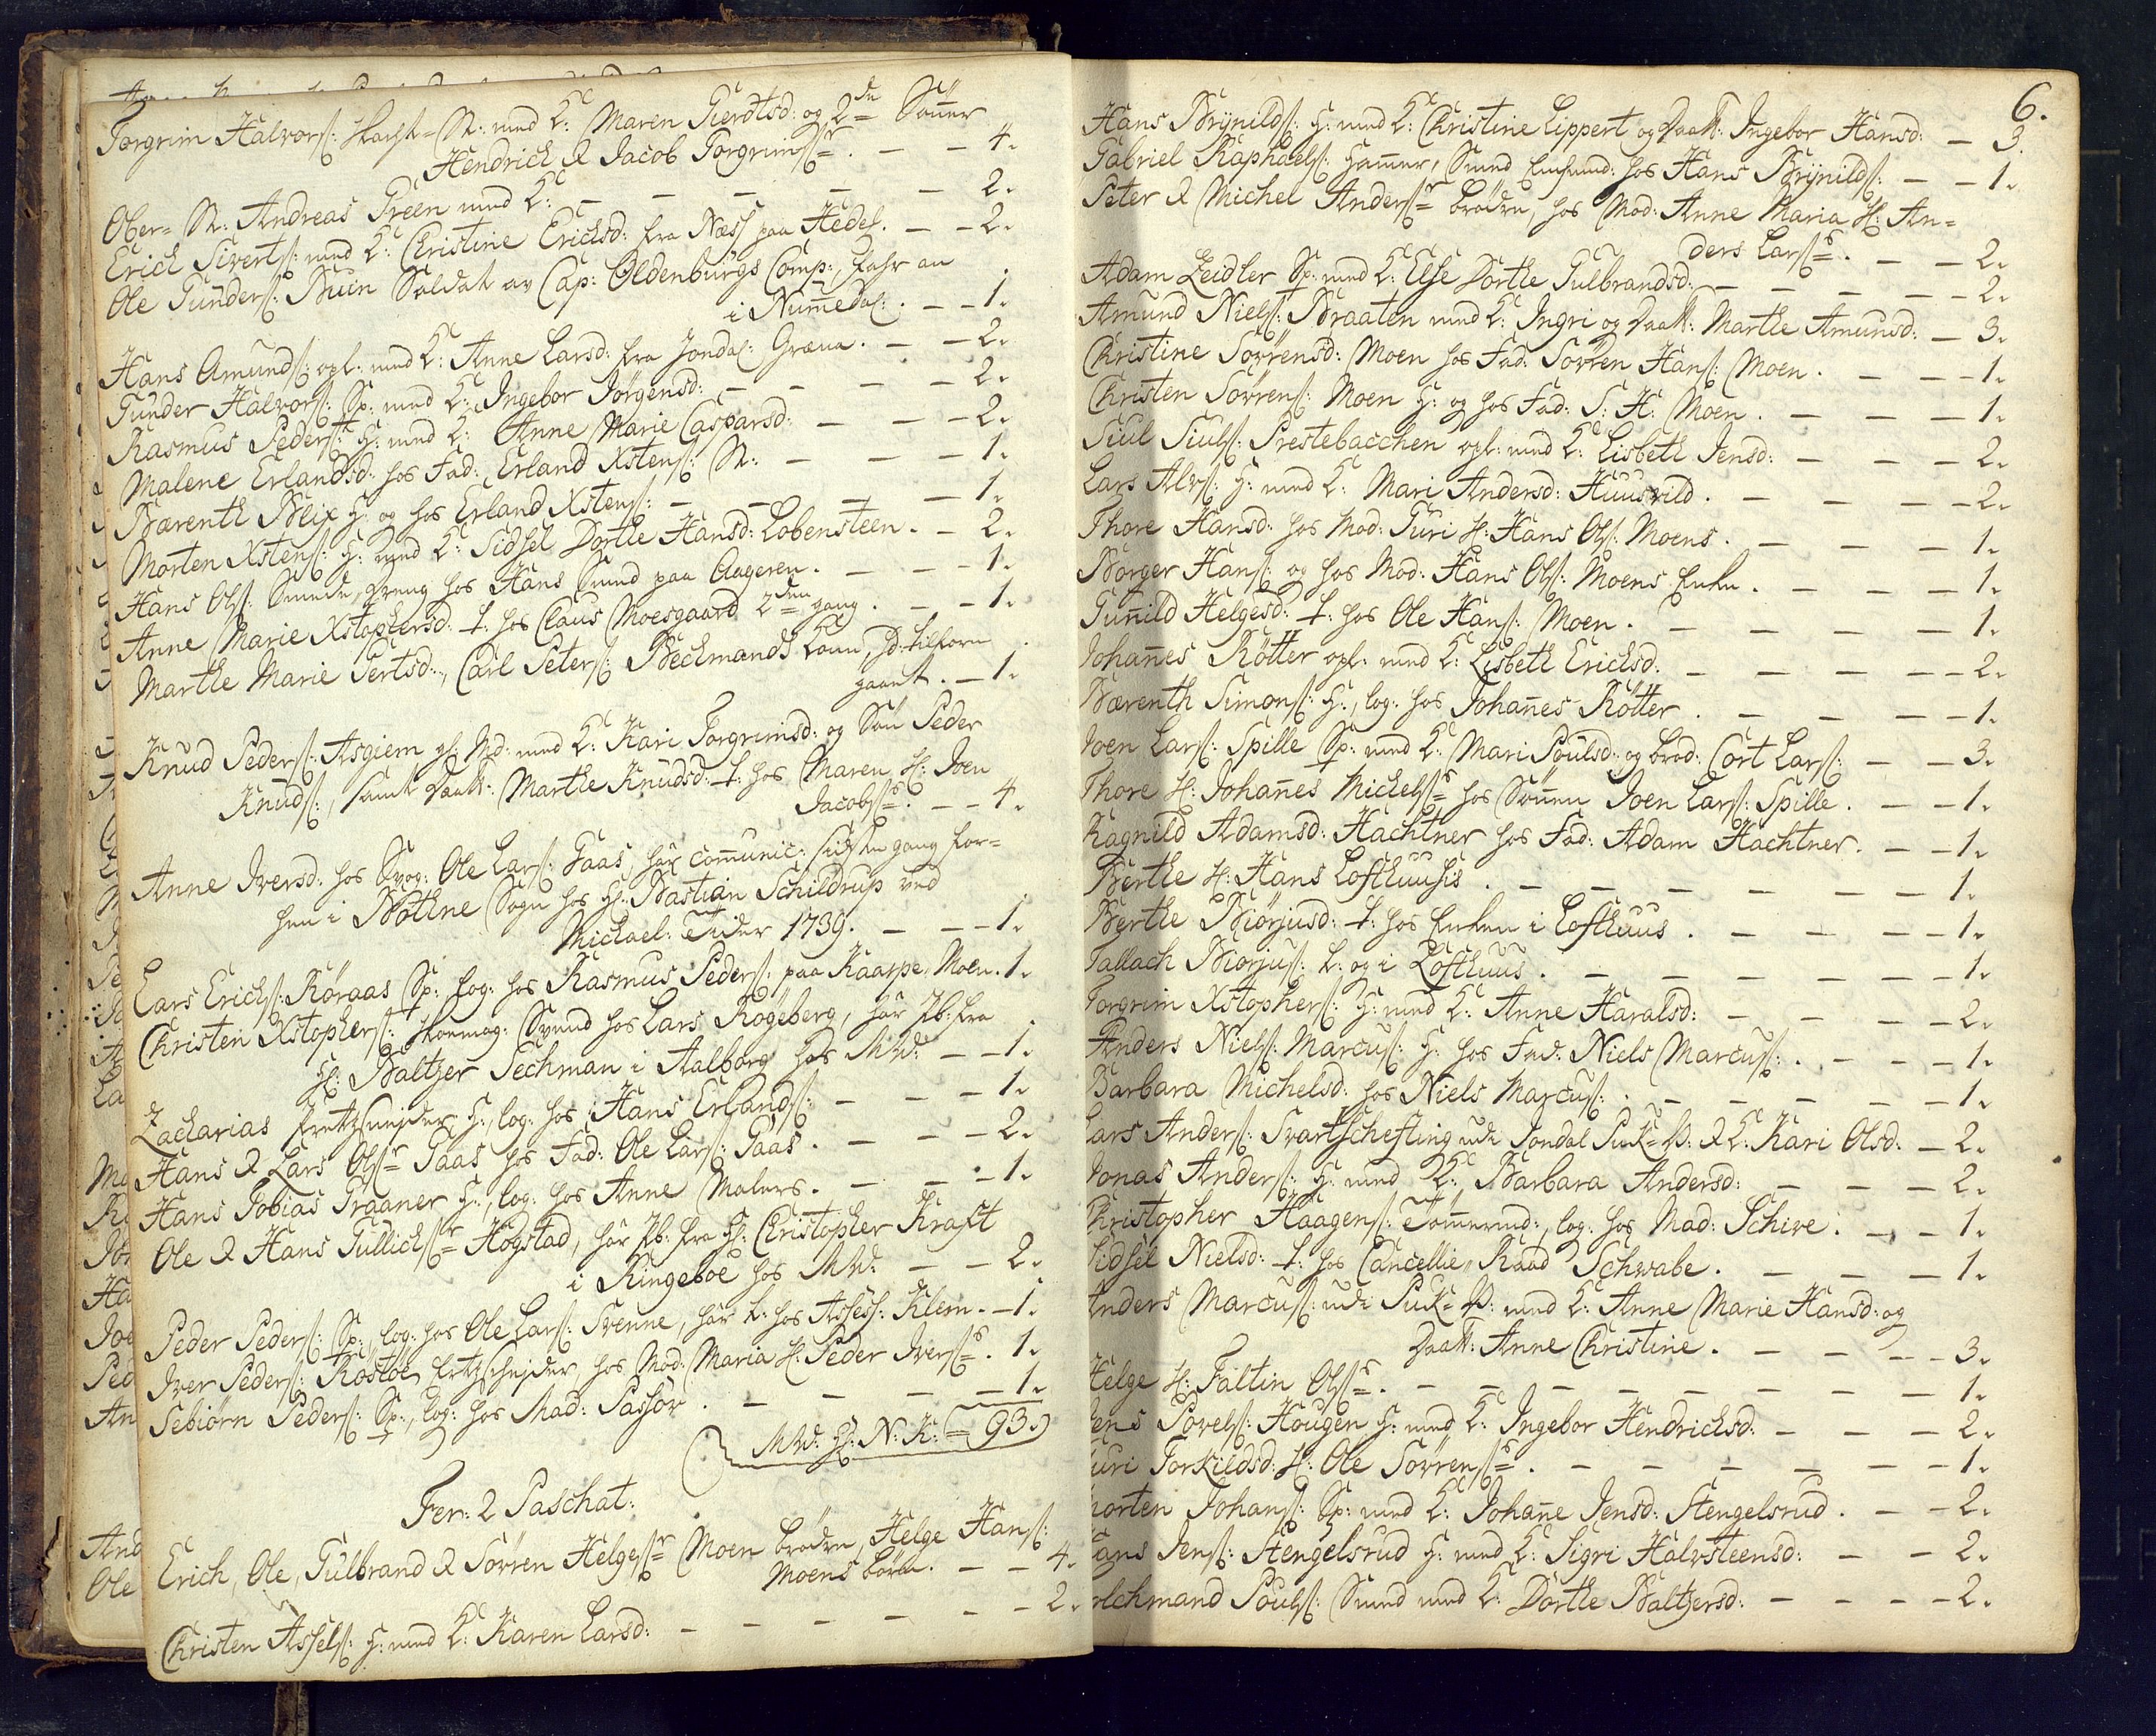 Torgrim Halvorß: Skacht-St: med K: Maren Gierdtsd: og 2de Sönner
Hendrich & Jacob Torgrimßr. — — 4.
Ober-St: Andreas Green med K: — — — — 2.
Erich Sivertß: med K: Christine Erichsd: fra Næss paa Hedel. — — 2.
Ole Gunderß: Ruin Soldat av Cap: Oldenburgs Comp:
i Num̄edal: . — — 1.
Hans Amundß: opl: med K: Anne Larsd: fra Jondal: Gruva. — — 2.
Gunder Halvorß: Sp: med K: Ingebor Jörgensd: — — — — 2.
Rasmus Pederß: H: med K: Anne Marie Caspersd: — — — 2.
Malene Erlandsd: hos Fad: Erland Xstenß: St: — — — 1.
Bærenth Bleix H: og hos Erland Xstenß: — — — — 1.
Morten Xstenß: H: med K: Sidsel Dorthe Hansd: Lobensteen. — 2.
Hans Olß: Smede dreng hos Hans Smed paa Aageren. — — — 1.
Anne Marie Xstophersd: t: hos Claus Moesgaard 2den gang. — — 1.
Marthe Marie Gertsd:, Carl Peterß: Beckmands Kone, Sd: tilforn
gaaet. — 1.
Knud Pederß: Asgiern med K: Kari Torgrimsd: og Sön Peder
Knudß:, samt Daatt: Marthe Knudsd: t: hos Maren H: Joen
Jacobßs. — — 4.
Anne Iversd: hos Svog: Ole Larß: Gaas, har com̄unic: sidste gang for-
hen i Böthne Sogn hos Hr: Bastian Schildrup ved
Michael: Tider 1739. — — — 1.
Lars Erichß: Röraas Sp: log: hos Rasmus Pederß: paa Kaarpe Moen. 1.
Christen Xstopherß: Skoemag: Svend hos Lars Rögeberg, har Sb: fra
Hr: Baltzer Pechman i Aalborg hos MW: — — 1.
Zacharias H:, log: hos Hans Erlandß: — — — 1.
Hans & Lars Olßr Gaas hos Fad: Ole Larß: Gaas. — — — 2.
Hans Tobias Graaner H:, log: hos Anne Malers. — — — 1.
Ole & Hans Gullichßr Högstad, har Sb: fra Hr: Christopher Kraft
i Ringeboe hos MW: — — 2.
Peder Pederß: Sp:, log: hos Ole Larß: Svenne, har t: hos Assess: Klem. — 1.
Iver Pederß: Rostöe, hos Mad: Maria H: Peder Iverßs. 1.
Sebiörn Pederß: Sp:, log: hos Mad: Passor . — — — — 1.
MW: Hr: N: K: = 93.
Fer: 2 Paschat:
Erich, Ole, Gulbrand & Sörren Helgeßr Moen brödre, Helge Hanß:
Moens börn. — — 4.
Christen Asselß: H: med K: Karen Larsd: — — — — — 2.
6.
Hans Brynildß: H: med K: Christine Lippert og Daatt: Ingebor Hansd: — 3.
Gabriel Raphaelß: Ham̄er, Smed hos Hans Brynildß: — — 1.
Peter & Michel Anderßr brödre, hos Mod: Anne Maria H: An-
ders Larßs. — — 2.
Adam Zeidler Sp: med K: Else Dorthe Gulbrandsd: — — — — 2.
Amund Nielß: Braaten med K: Ingri og Daatt: Marthe Amunsd: — 3.
Christine Sörrensd: Moen hos Fad: Sörren Hanß: Moen. — — — 1.
Christen Sörrenß: Moen H: og hos Fad: S: H: Moen. — — — — 1.
Siul Siulß: Prestebacchen opl: med K: Lisbeth Jensd: — — — 2.
Lars Alvß: H: med K: Mari Andersd: Huusvild. — — — — 2.
Thore Hansd: hos Mod: Guri H: Hans Olß: Moens. — — — 1.
Börger Hanß: og hos Mod: Hans Olß: Moens Enke. — — — 1.
Gun̄ild Helgesd: t: hos Ole Hanß: Moen. — — — — — 1.
Johan̄es Rötter opl: med K: Lisbeth Erichsd: — — — — 2.
Bærenth Simonß: H:, log: hos Johan̄es Rötter. — — — — 1.
Joen Larß: Spille Sp: med K: Mari Poulsd: og brod: Cort Larß: — — 3.
Thore H: Johan̄es Michelßs hos Sön̄en Joen Larß: Spille. — — 1.
Ragnild Adamsd: Hachtner hos Fad: Adam Hachtner. — — 1.
Berthe H: Hans Lofthuusis. — — — — — — 1.
Berthe Biörjusd: t: hos Enken i Lofthuus. — — — — 1.
Tallach Biörjuß: t: og i Lofthuus. — — — — — 1.
Torgrim Xstopherß: H: med K: Anne Haralsd: — — — — 2.
Anders Nielß: Marcuß: H: hos Fad: Niels Marcuß: . — — — 1.
Barbara Michelsd: hos Niels Marcuß: . — — — — — 1.
Lars Anderß: Svartschefting ude Jondal Puk-St: & K: Kari Olsd: — 2.
Jonas Anderß: H: med K: Barbara Andersd: — — — — 2.
Christopher Haagenß: Töm̄ermd:, log: hos Mad: Schive. — — 1.
Sidsel Nielsd: t: hos Cancellie Raad Schwabe. — — — — 1.
Anders Marcuß: ude Puk-St: med K: Anne Marie Hansd: og
Daatt: Anne Christine. — — — — 3.
Helge H: Faltin Olßs. — — — — — — — 1.
Jens Povelß: Hougen H: med K: Ingebor Hendrichsd: — — — 2.
Guri Torkildsd: H: Ole Sörrenßs. — — — — — — 1.
Morten Johanß: Sp: med K: Johan̄e Jensd: Stengelsrud. — — 2.
Hans Jenß: Stengelsrud H: med K: Sigri Halvsteensd: — — 2.
Volchmand Poulß: Smed med K: Dorthe Baltzersd: — — — 2.